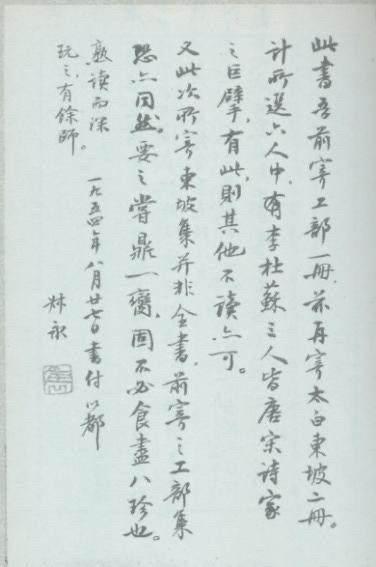 此書吾前寄工部一册，茲再寄太白東坡二册。
計所選六人中，有李杜蘇三人皆唐宋诗家
之巨擘，有此則其他不读亦可。
又此次所寄東坡集并非全書，前寄之工部集
恐亦同然。要之嘗鼎一臠，固不必食盡八珍也。
熟读而深
玩之，有餘師。
一九五四年八月廿七日書付以都
林永